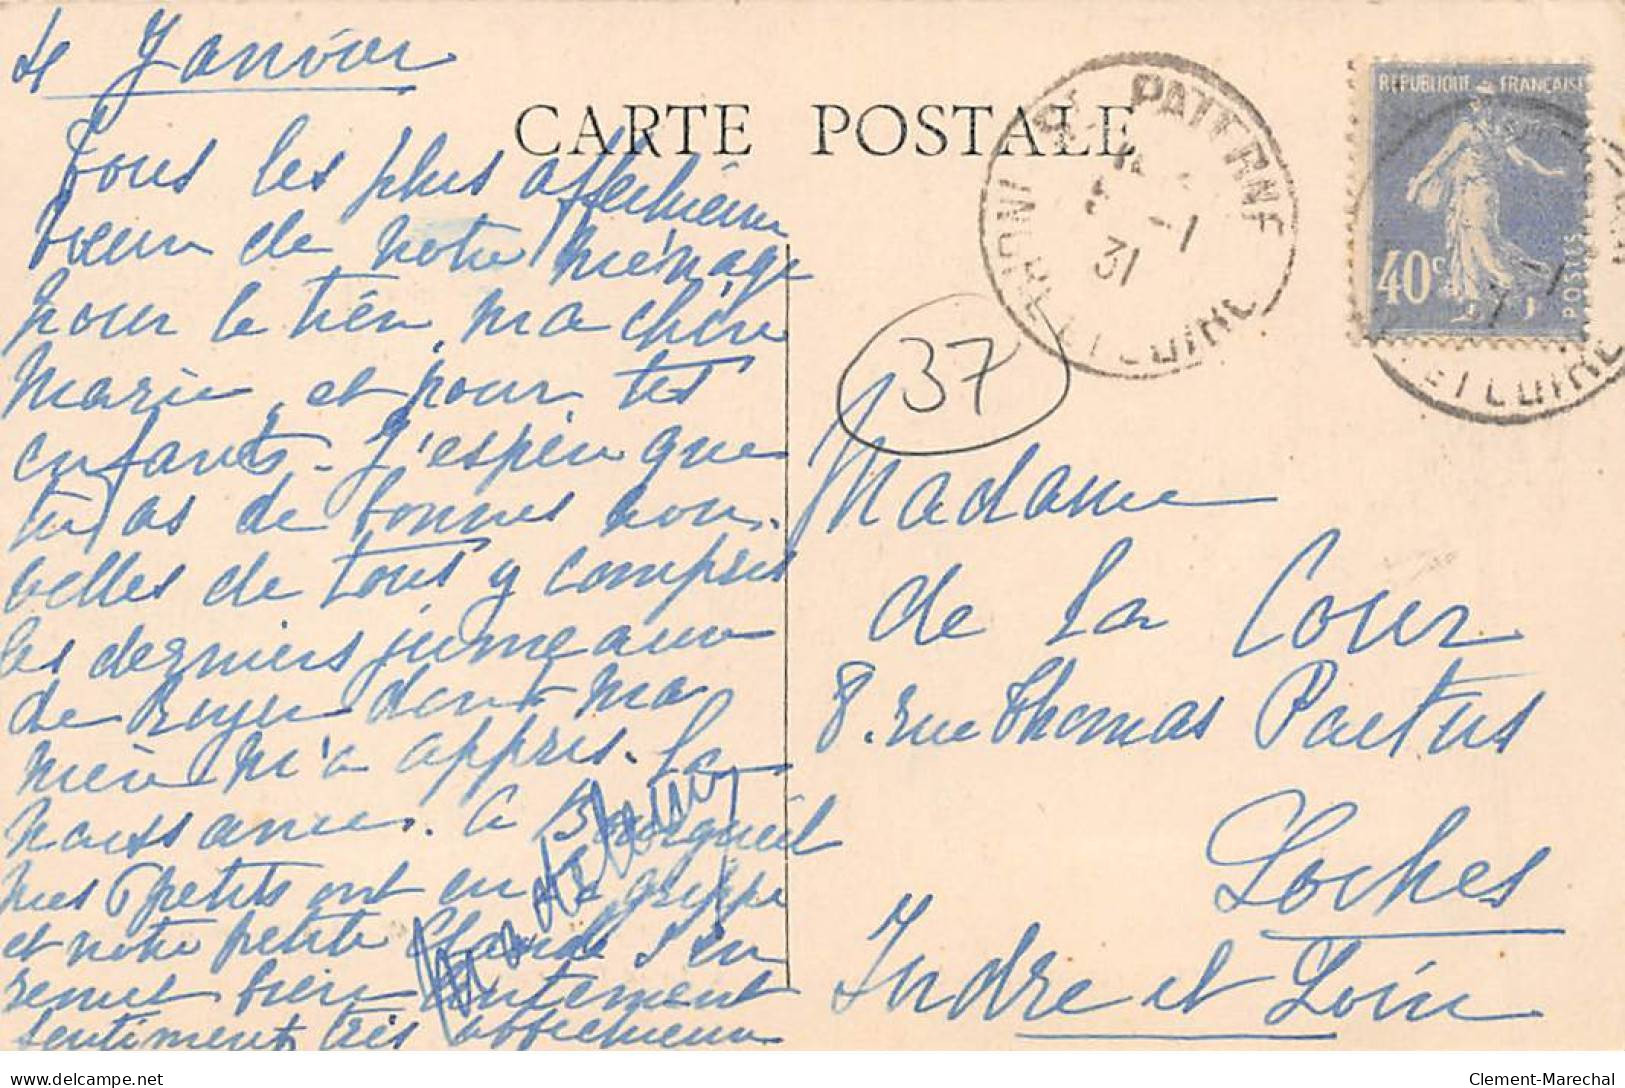 4 Janvier
CARTE POSTALE
Tous les plus affectueux
vœux de notre ménage
pour le tien, ma chère
Marie, et pour tes
enfants. J'espère que
tu as de bonnes nou-
velles de tous y compris
les derniers jumeaux
de dont ma
mère m'a appris la
naissance. A Bourgueil
mes petits ont eu la grippe
et notre petite Claude s'en
remet bien lentement
sentiments très affectueux
ST PATERNE
5 -1
31
INDRE ET LOIRE
REPUBLIQUE FRANÇAISE
40 c
POSTES
ET LOIRE
37
Madame
de La Cour
8. rue Thomas Pactus
Loches
Indre et Loire
Clement-Marechal
delcampe.net